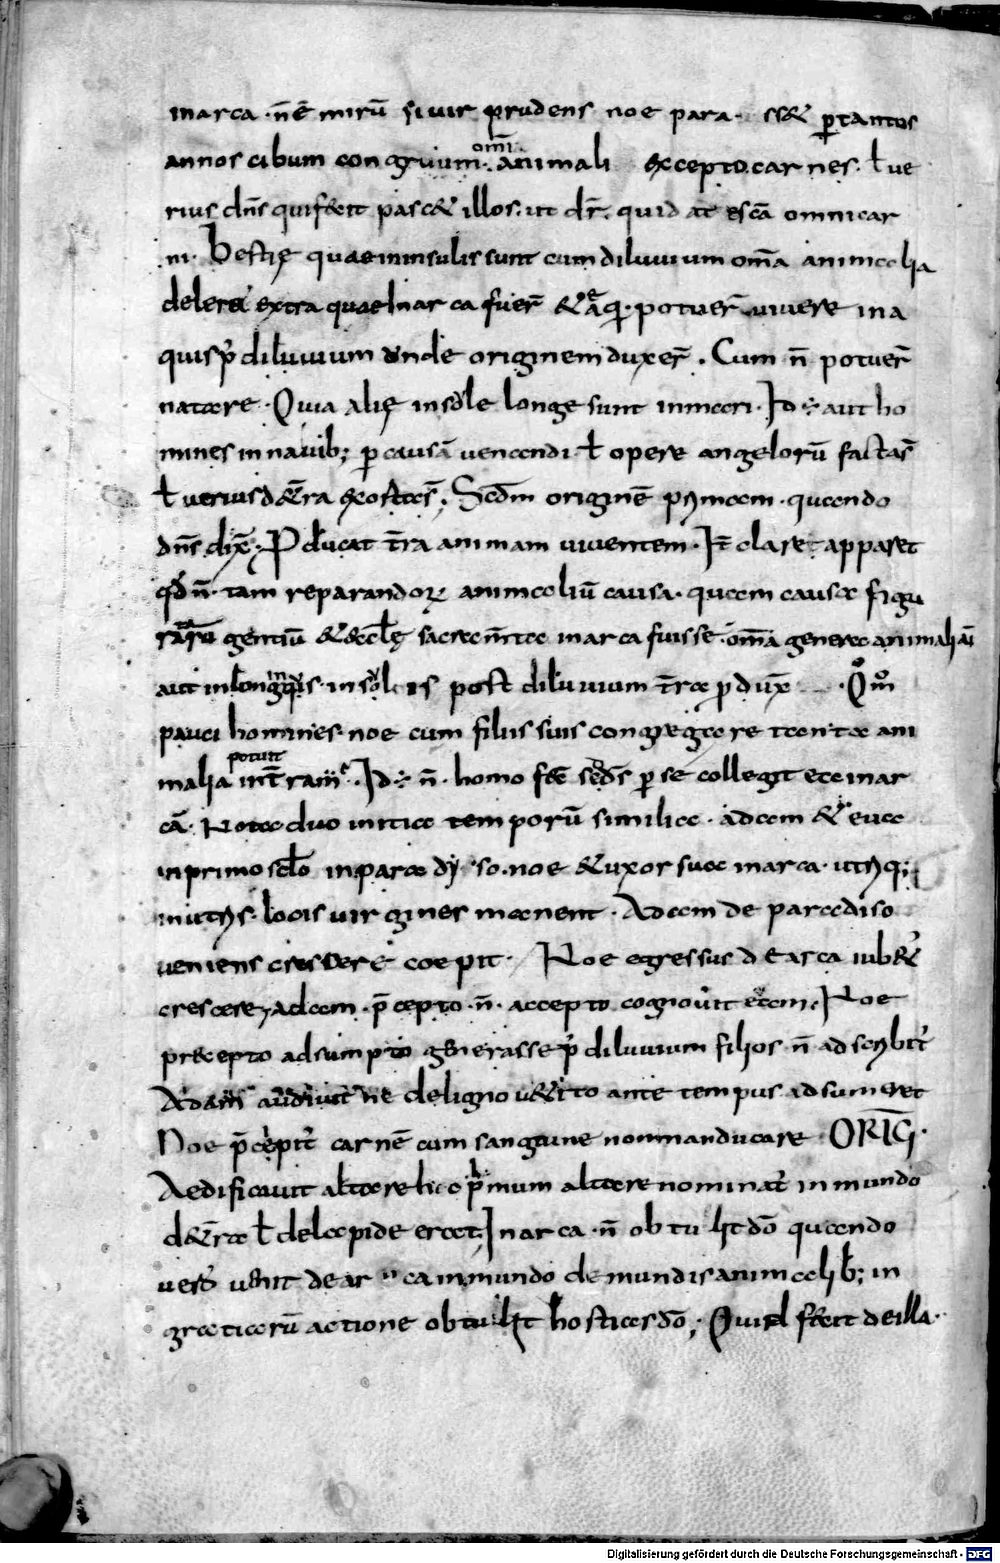 inarca · n̄ ē mirū si vir prudens noe para ss& ꝑtantos
annos cibum congruum · om̄i animali excepto carnes · ł ve
rius dn̄s quifecit pasc& illos · ut dr̄ · quidat escā omnicar
ni · Bestię quaeininsulis sunt cumdiluvium om̄a animalia
deler& extra quaeInarca fuer̄ &aq̄ · potuer̄ vivere ina
quis p̓ diluvium unde originem duxer̄ · Cum n̄ potuer̄
natare · Quia alię insole longe sunt inmari · Id ÷ aut ho
mines innavib; ꝑ causā venandi ł opere angelorū factas̄
ł verius d&erra exortas̄ · Scd̄m originē prymam · quando
dn̄s dix̄ · Pducat t̄ra animam viventem · H̄ clare apparet
qd n̄ · tam reparandoꝝ animaliū causa · quam causa figu
rarū gentiū &eccłę sacram̄ta inarca fuisse · om̄a genera animaliū
aut inlonginquis · insolis post diluvium t̄ra ꝓdux̄ · Qm̄
pauci homines noe cum filiis suis congregare tanta ani
malia potuit int̄ram̄ · Id ÷ n̄ · homo sed d̄s ꝑse collegit ea inar
cā · Nota duo initia temporū similia · adam & eva
inprimo scło inparadyso · noe &uxor sua inarca · utryq;
inutrys · locis virgines manent · Adam de paradiso
veniens crescere coepit · Noe egressus de arca iub&
crescere, adam · p̄cepto · n̄ · accepto cognovit evam · Noe
praecepto adsumpto generasse p̓ diluvium filios n̄ adscrybit̓
Adam audivit ne deligno v&ito ante tempus adsumeret
Noe p̄cepit̓ carnē cum sanguine nonmanducare · ORIḠ ·
Aedificavit altare hic primum altare nominat̓ inmundo
d&erra ł delapide erat · Inarca · n̄ obtulit dō quando
vero venit dearca inmundo demundisanimalib; in
graticarū actione obtulit hostiasdō · Quid fecit deilla ·